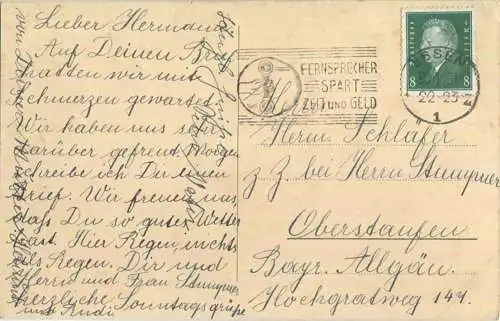 Lieber Hermann!
Auf Deinen Brief
hatten wir mit
Schmerzen gewartet.
Wir haben uns sehr
darüber gefreut. Morgen
schreibe ich Dir einen
Brief. Wir freuen uns,
daß Du so gutes Wetter
hast. Hier Regen, nichts
als Regen. Dir und
Herrn und Frau Stumpner
herzliche Sonntagsgrüße
und Rudi
von Deiner
FERNSPRECHER
SPART
ZEIT UND GELD
ESSEN
22-23
1
8 8
Herrn Schläfer
z. Z. bei Herrn Stumpner
Oberstaufen
Bayr. Allgäu.
Hochgratweg 144.